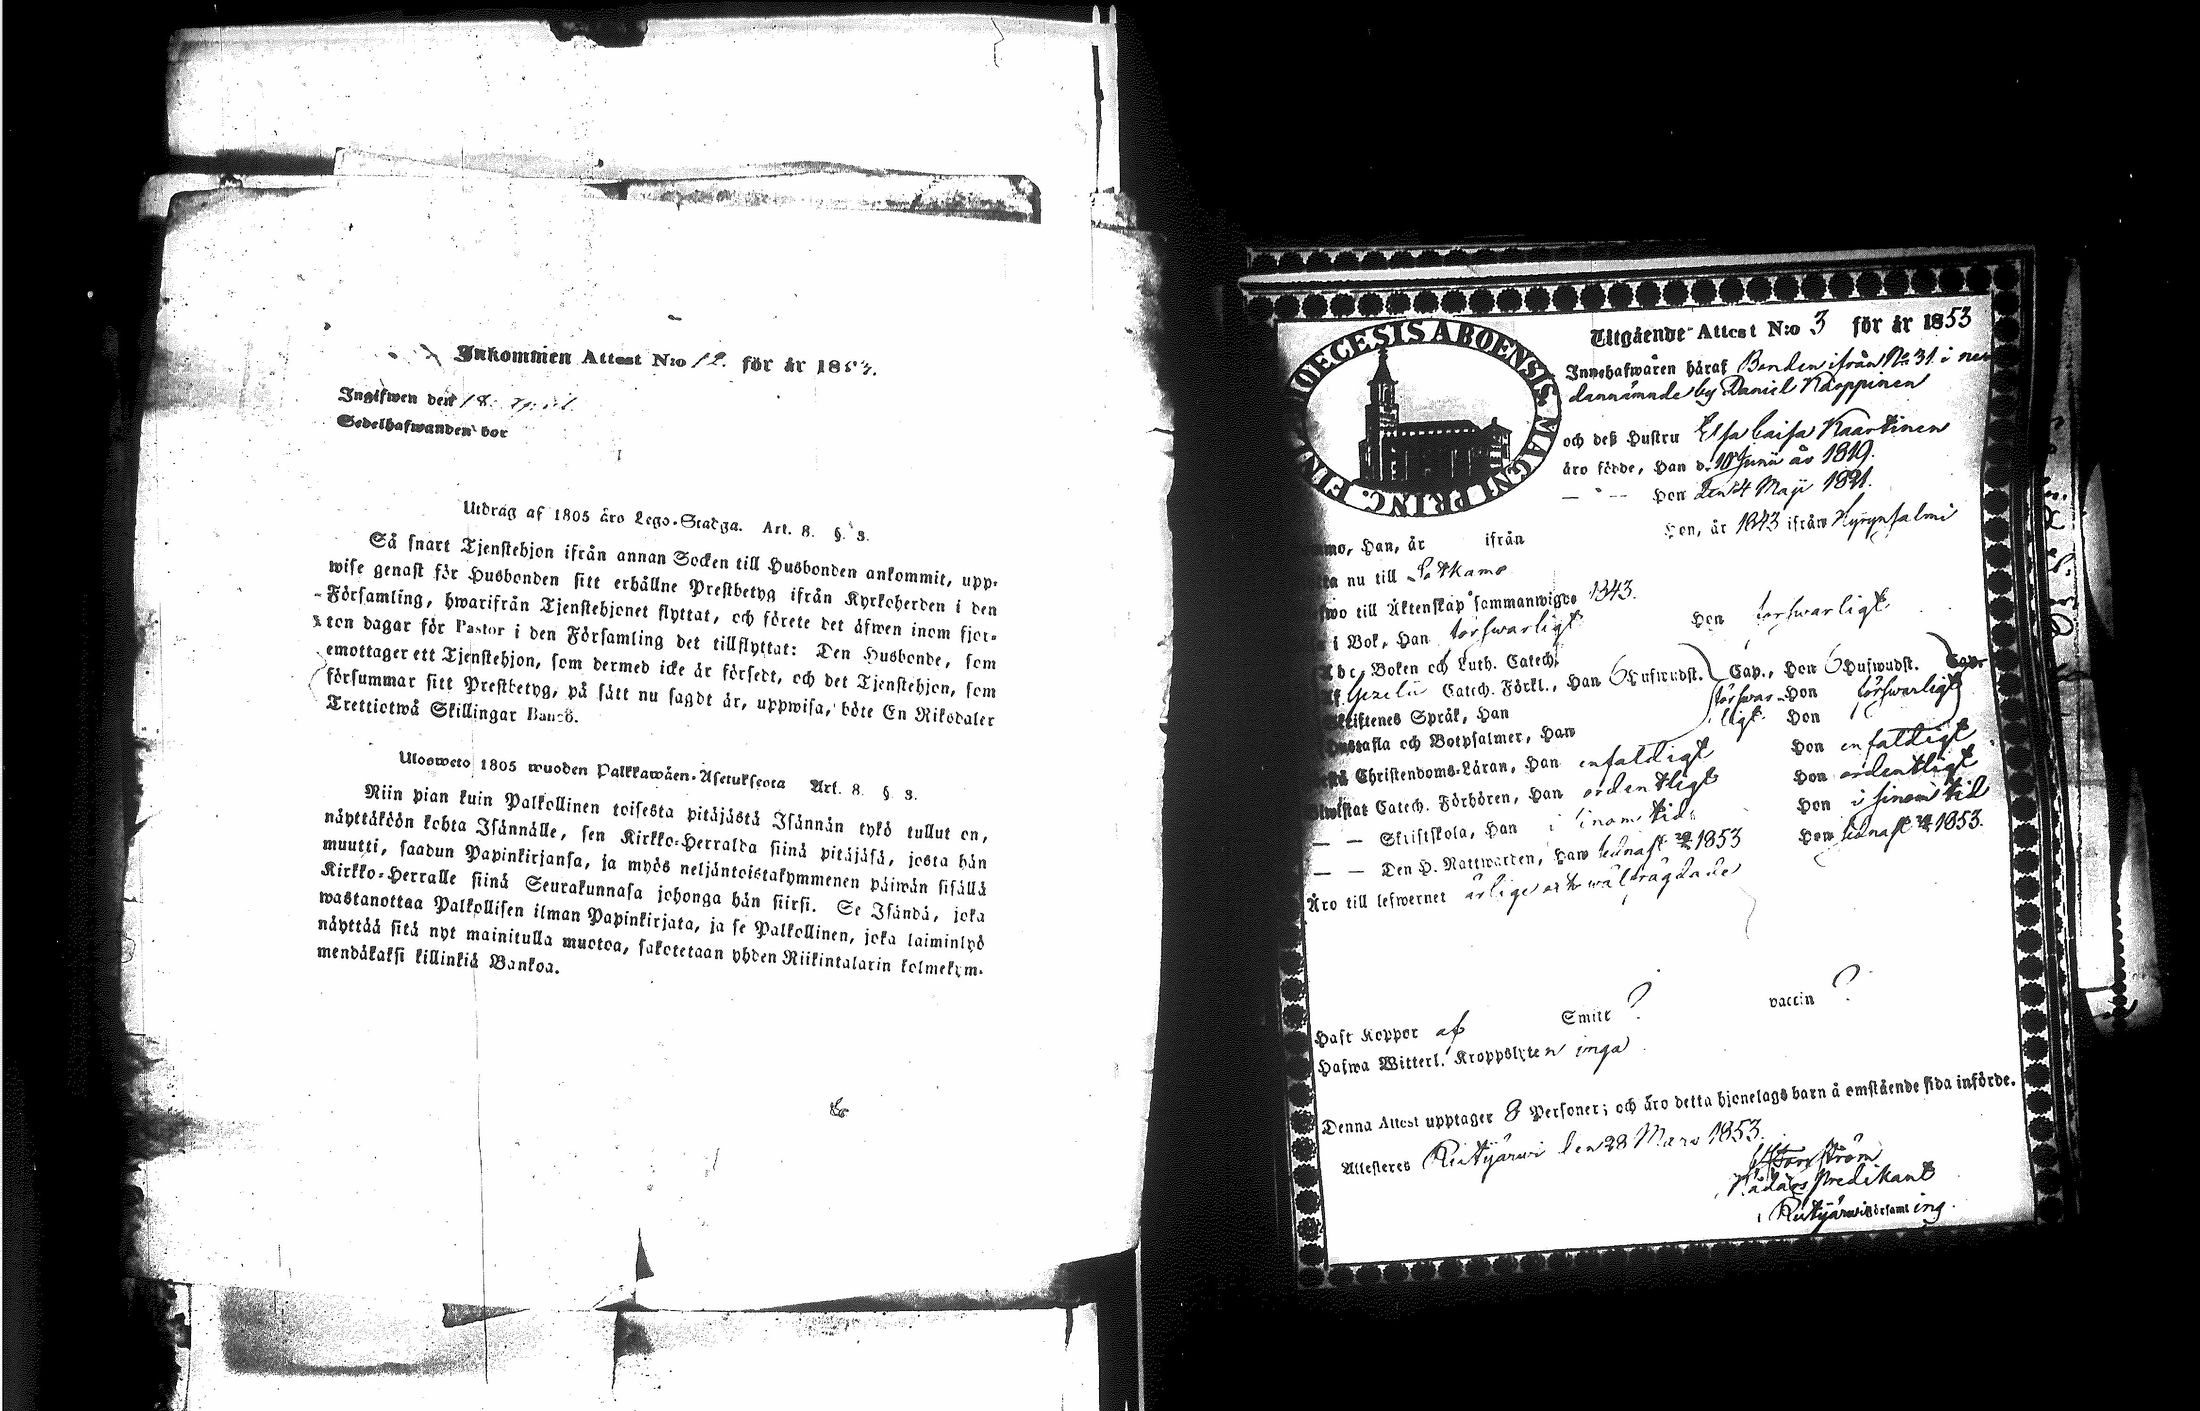 Inkommen Attest N:o 12. för år 1853.
Ingifwen den 18. April.
Sedelhafwanden bor
Utdrag af 1805 åro Lego-Stadga. Art. 8. §. 3.
Så snart Tjenstehjon ifrån annan Socken till Husbonden ankommit, upp-
wise genast för Husbonden sitt erhållne Prestbetyg ifrån Kyrkoherden i den
Församling, hwarifrån Tjenstehjonet flyttat, och förete det äfwen inom fjor-
ton dagar för Pastor i den Församling det tillflyttat: Den Husbonde, som
emottager ett Tjenstehjon, som dermed icke är försedt, och det Tjenstehjon, som
försummar sitt Prestbetyg, på sätt nu sagdt är, uppwisa, böte En Riksdaler
Trettiotwå Skillingar Banco.
Ulosweto 1805 wuoden Palkkawäen-Asetuksesta Art. 8. § 3.
Niin pian kuin Palkollinen toisesta pitäjästä Isännän tykö tullut on,
näyttäköön kohta Isännälle, sen Kirkko-Herralda siinä pitäjäsä, josta hän
muutti, saadun Papinkirjansa, ja myös neljäntoistakymmenen päiwän sisällä
Kirkko-Herralle siinä Seurakunnasa johonga hän siirsi. Se Isändä, joka
wastanottaa Palkollisen ilman Papinkirjata, ja se Palkollinen, joka laiminlyö
näyttää sitä nyt mainitulla muotoa, sakotetaan yhden Riikintalarin kolmekym-
mendäkaksi killinkiä Bankoa.
DIOECESIS ABOENSIS. MAGNI PRINC. FINL.
Utgående Attest N:o 3 för år 1853
Innehafwaren häraf Bonden ifrån No 31. i ne
dannämnde by Daniel Käppinen
och deß Hustru Elsa Caisa Kaartinen
äro födde, Han d. 10 Junii år 1819.
— " — Hon den 4 Maji 1821.
mo, Han, år ifrån Hon, år 1843 ifrån Hyrynsalmi
ta nu till Sotkamo
wo till Äktenskap sammanwigde 1843.
i Bok, Han förswarligt Hon förswarligt
Abc Boken och Luth. Catech.
af Gezelii Catech. Förkl., Han 6 Hufwudst. Cap., Hon 6 Hufwudst. Cap.
Skriftenes Språk, Han förswar- Hon förswarligt
Hustafla och Botpsalmer, Han ligt Hon
Christendoms-Läran, Han enfaldigt Hon enfaldigt
Catech. Förhören, Han ordentligt Hon ordentligt
— — Skriftskola, Han i sinom tid Hon i sinom tid
— — Den H. Nattwarden, Han sednast 1853 Hon sednast 1853.
Äro till lefwernet ärlige och wälfrägdade
Haft Koppor af Smitt ? vaccin ?
Hafwa Witterl. Kroppslyten inga
Denna Attest upptager 8 Personer; och äro detta hjonelags barn å omstående sida införde.
Attesteres Ristijärwi den 28 Mars 1853.
Predikant
i Ristijärwi Församling.